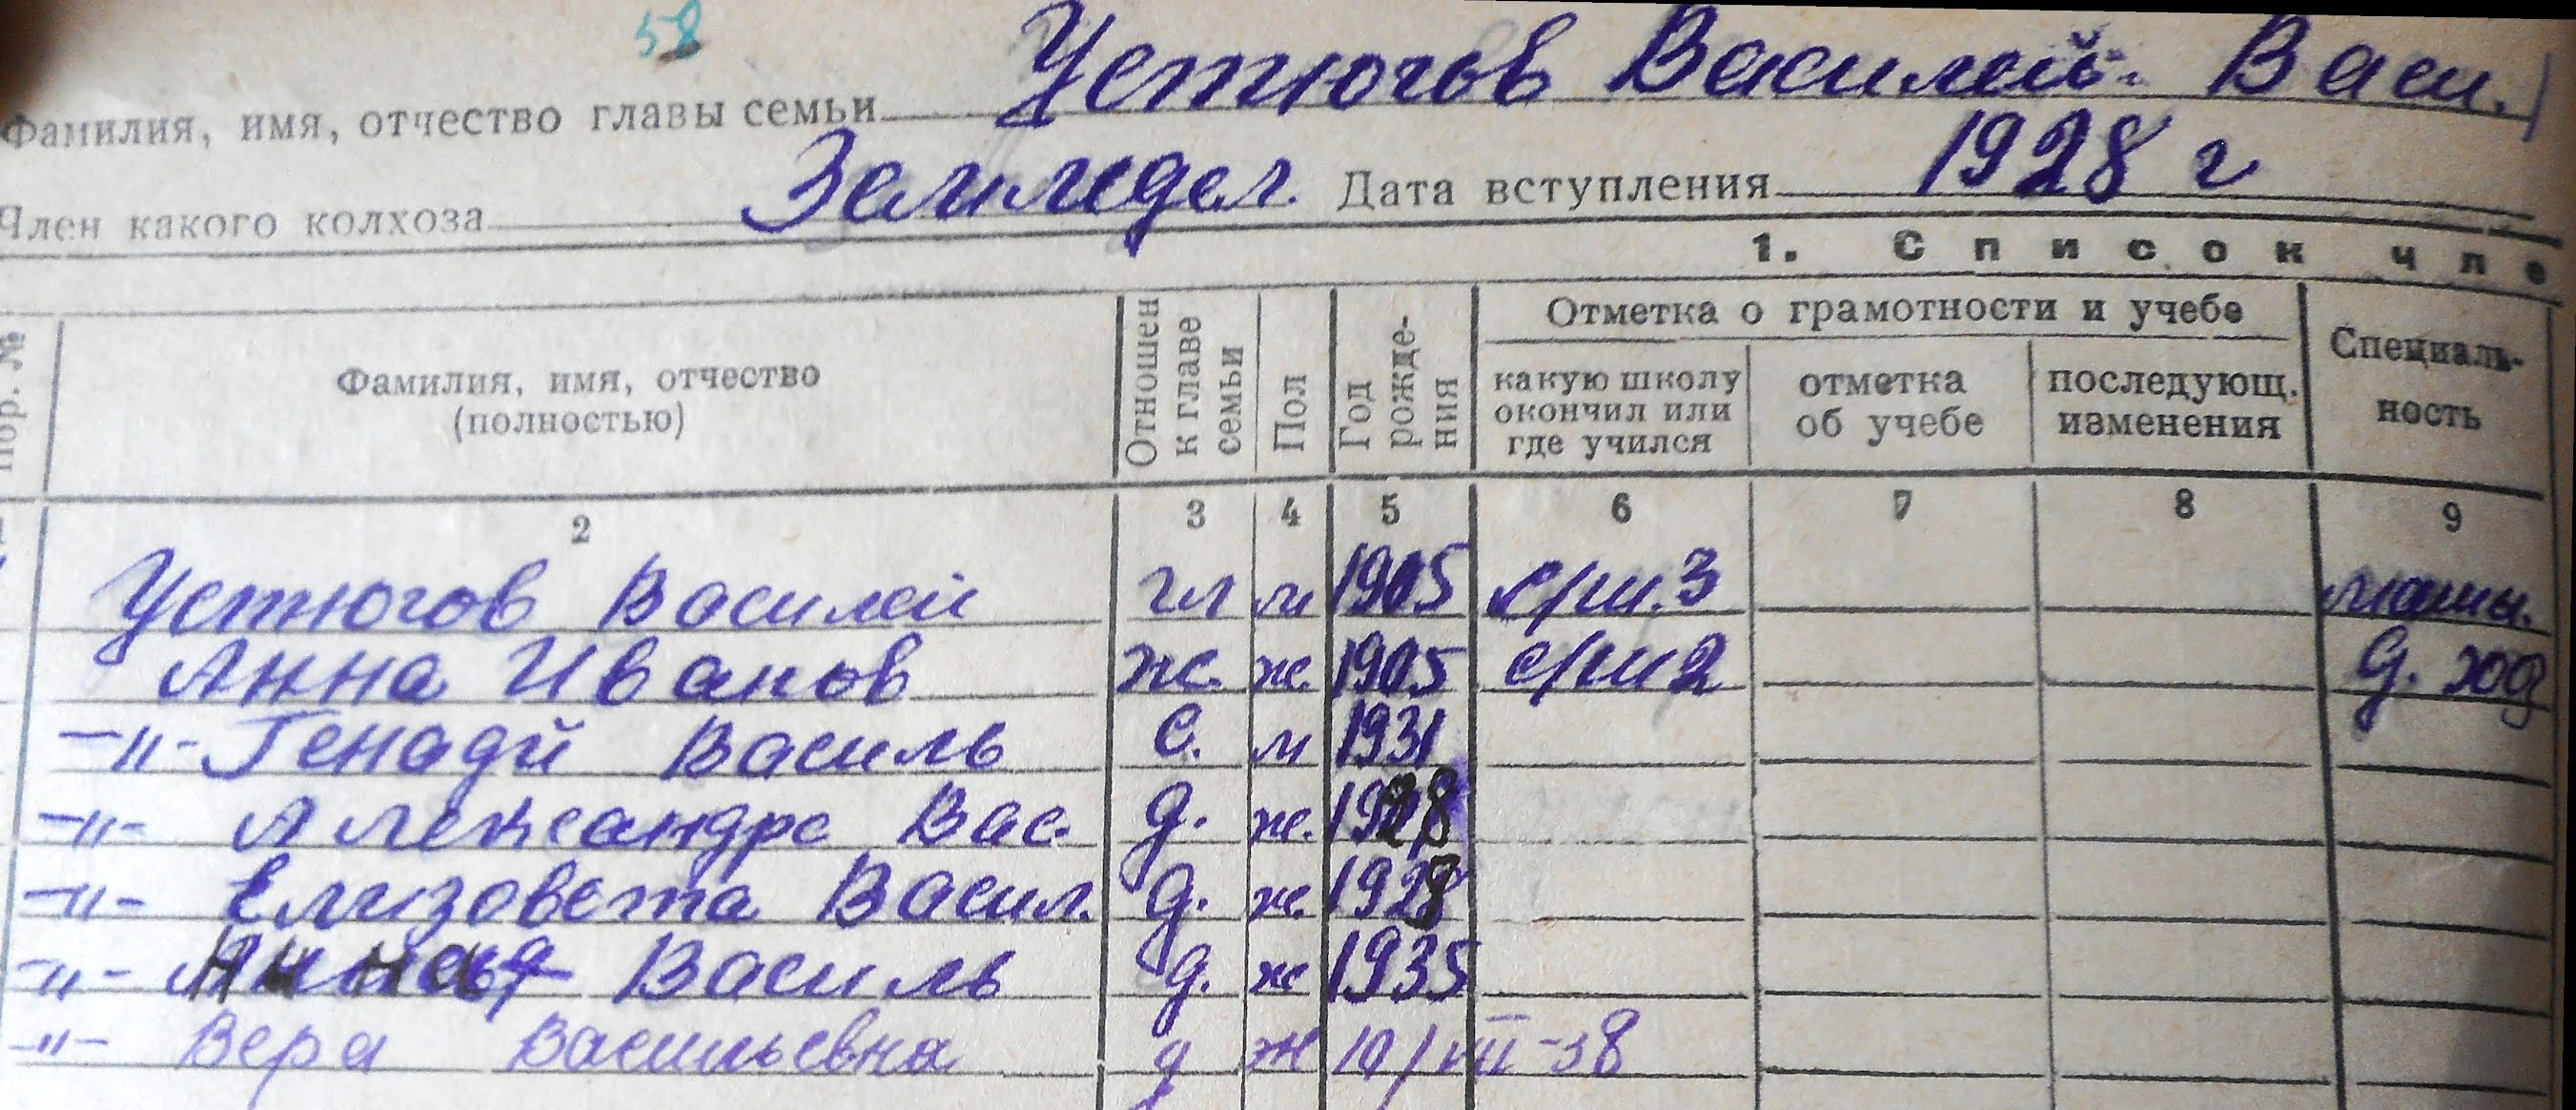 58
Фамилия, имя, отчество главы семьи Устюгов Василей Васи.
Член какого колхоза Землядел. Дата вступления 1928 г
1. Список чле
Пор. № Фамилия, имя, отчество (полностью) Отношен к главе семьи Пол Год рожде- ния Отметка о грамотности и учебе какую школу окончил или где учился отметка об учебе последующ. изменения Специаль- ность
2 3 4 5 6 7 8 9
Устюгов Василей гл м 1905 с/ш.3
Анна Иванов ж. ж. 1905 с/ш 2 д. хоз
-"- Генадй Василь с. м 1931
-"- Александра Вас. д. ж. 1928
-"- Елизовета Васил. д. ж. 1928
-"- Василь д. ж 1935
-"- Вера Васильевна д ж 10/VII-38